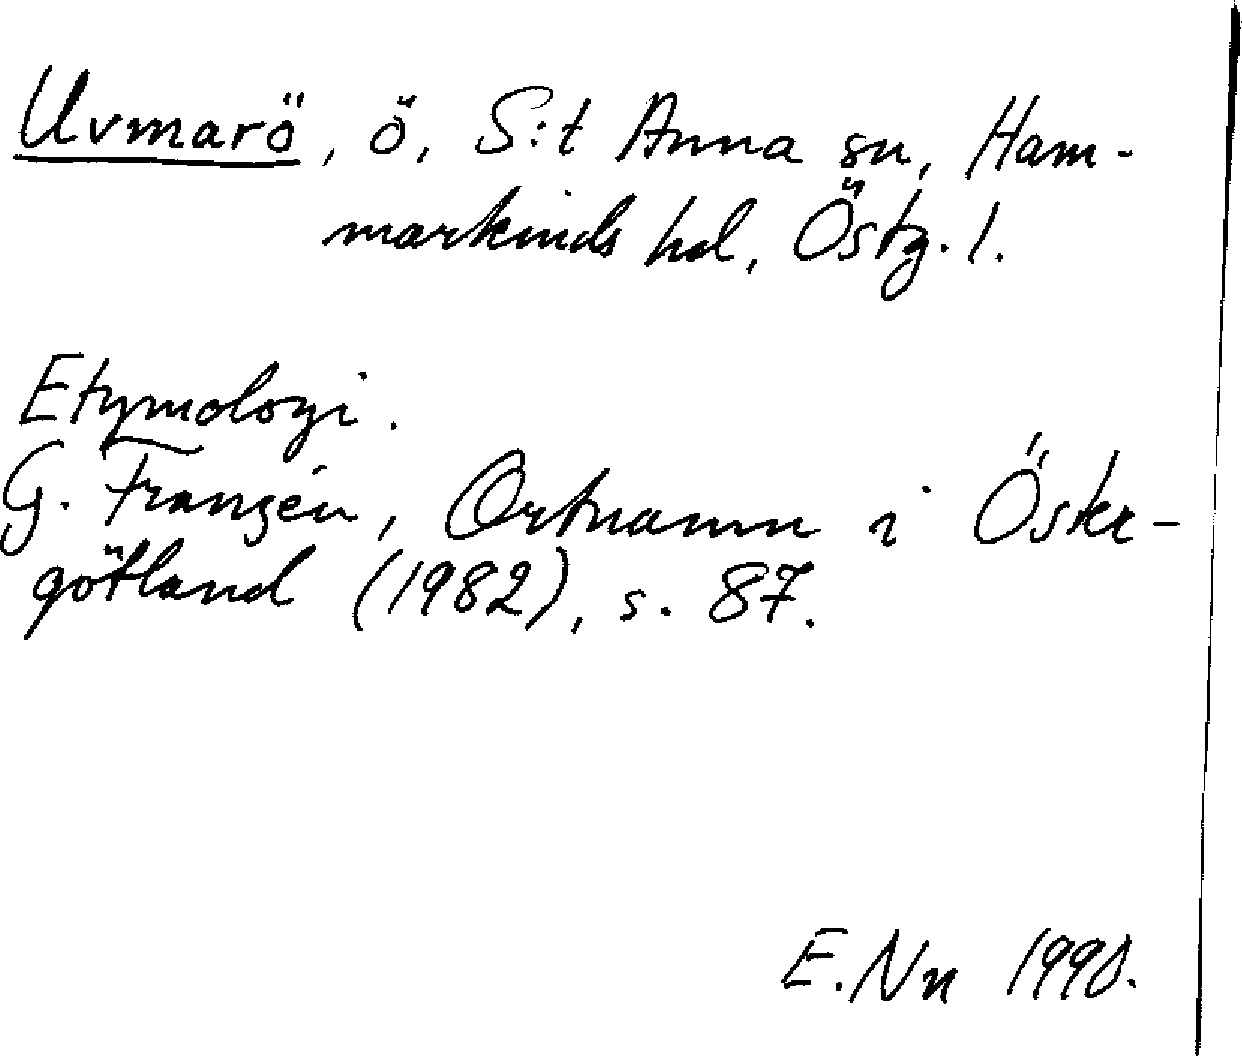 Uvmarö, ö, S:t Anna sn, Ham-
markinds hd, Östg. l.
Etymologi.
G. Franzén, Ortnamn i Öster-
götland (1982), s. 87.
E. Nn 1990.